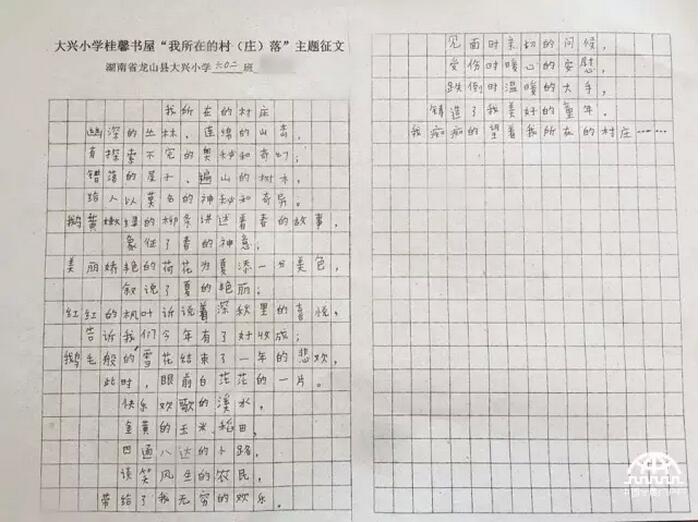 大兴小学桂馨书屋“我所在的村（庄）落”主题征文
湖南省龙山县大兴小学 六0二 班
我所在的村庄
幽深的丛林，连绵的山峦，
有探索不完的奥秘和奇幻；
错落的屋子、遍山的树木，
给人以莫名的神秘和奇异。
鹅黄嫩绿的柳条讲述着春的故事，
象征了春的神意；
美丽娇艳的荷花为夏添一分美色，
叙说了夏的艳丽；
红红的枫叶诉说着深秋里的喜悦，
告诉我们今年有了好收成；
鹅毛般的雪花结束了一年的悲欢，
此时，眼前白茫茫的一片。
快乐欢歌的溪水，
金黄的玉米、稻田，
四通八达的小路，
谈笑风生的农民，
带给了我无穷的欢乐。
见面时亲切的问候，
受伤时暖心的安慰，
跌倒时温暖的大手，
铸造了我美好的童年。
我痴痴的望着我所在的村庄……